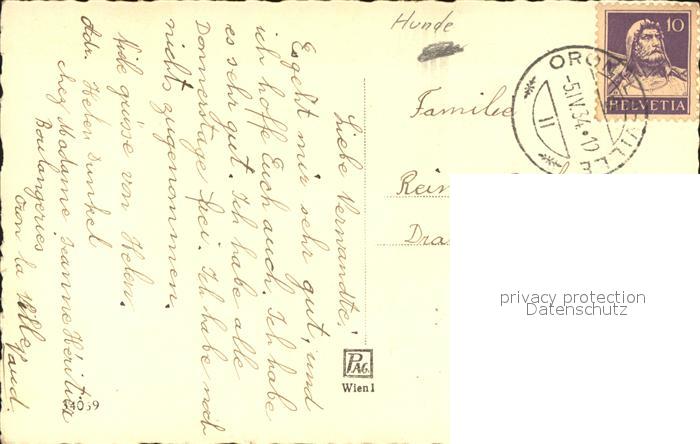 Hunde
Liebe Verwandte!
Es geht mir sehr gut, und
ich hoffe Euch auch. Ich habe
es sehr gut. Ich habe alle
Donnerstage frei. Ich habe noch
nichts zugenommen.
Viele grüsse von Helen.
Adr. Helen Dunkel
chez Madame Jeanne Héritier
Boulangeries
Oron la Ville Vaud.
4039
Familie
Rein
Dra
10
HELVETIA
ORON
VILLE
-5.IV.34.12
II
PAG.
Wien 1
privacy protection
Datenschutz